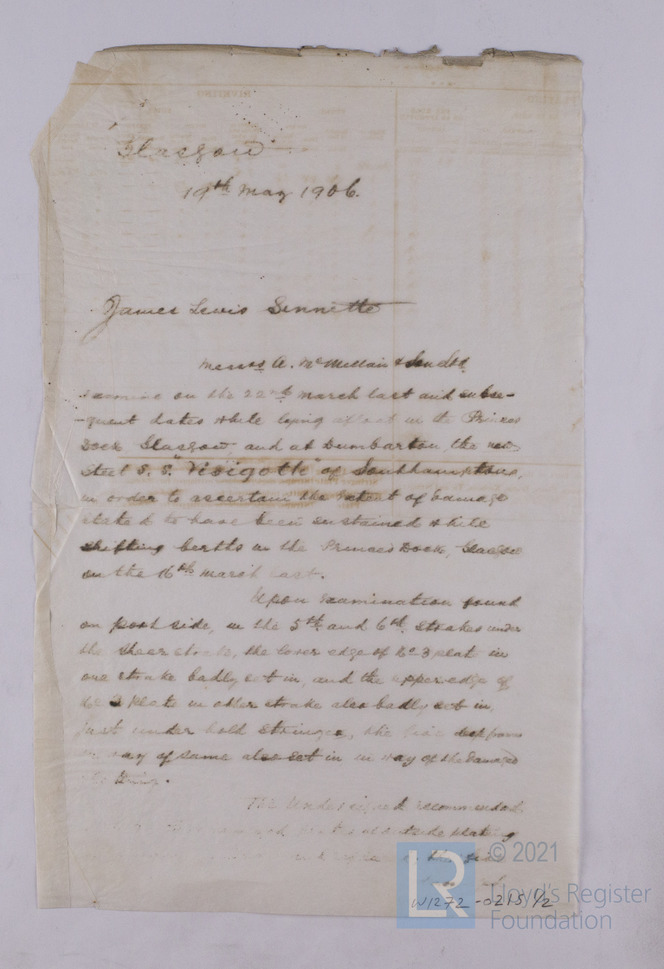 Glasgow
19th May 1906.
James Lewis Sennette
Messrs A. McMillan & Son Ltd
examine on the 22nd March last and subse-
-quent dates while lying afloat in the Princes
Dock Glasgow, and at Dumbarton, the new
Steel S.S. "Visigoth" of Southampton,
in order to ascertain the extent of damage
stated to have been sustained while
shifting berths in the Princes Dock, Glasgow
on the 16th March last.
Upon examination found
on port side, in the 5th and 6th strakes under
the sheer strake, the lower edge of No 3 plate in
one strake badly set in, and the upper edge of
No 3 plate in other strake also badly set in,
just under hold stringer, the
in way of same also set in in way of the damaged
The Undersigned recommended
outside plating
the
W1272-0215 1/2
© 2021
LR
Lloyd's Register
Foundation